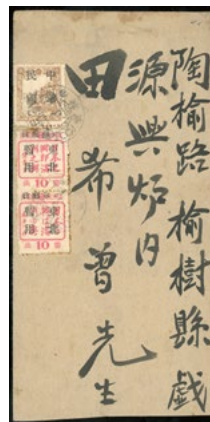 陶榆路 榆樹縣戲
源興炉内
田希曾先生
中華
民國
東北
暫用
10 10
東北
暫用
10 10